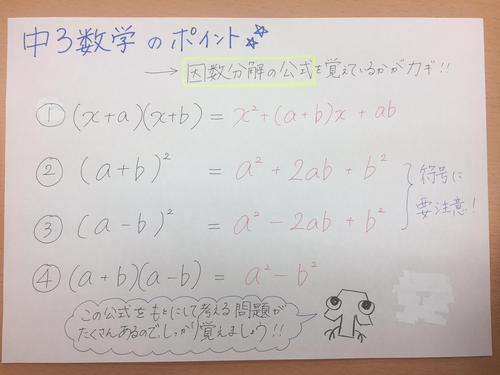 中3数学のポイント☆☆
→ 因数分解の公式を覚えているかがカギ!!
① (x+a)(x+b) = x²+(a+b)x+ab
② (a+b)² = a²+2ab+b²
③ (a-b)² = a²-2ab+b²
符号に
要注意!
④ (a+b)(a-b) = a²-b²
この公式をもとにして考える問題が
たくさんあるので、しっかり覚えましょう!!